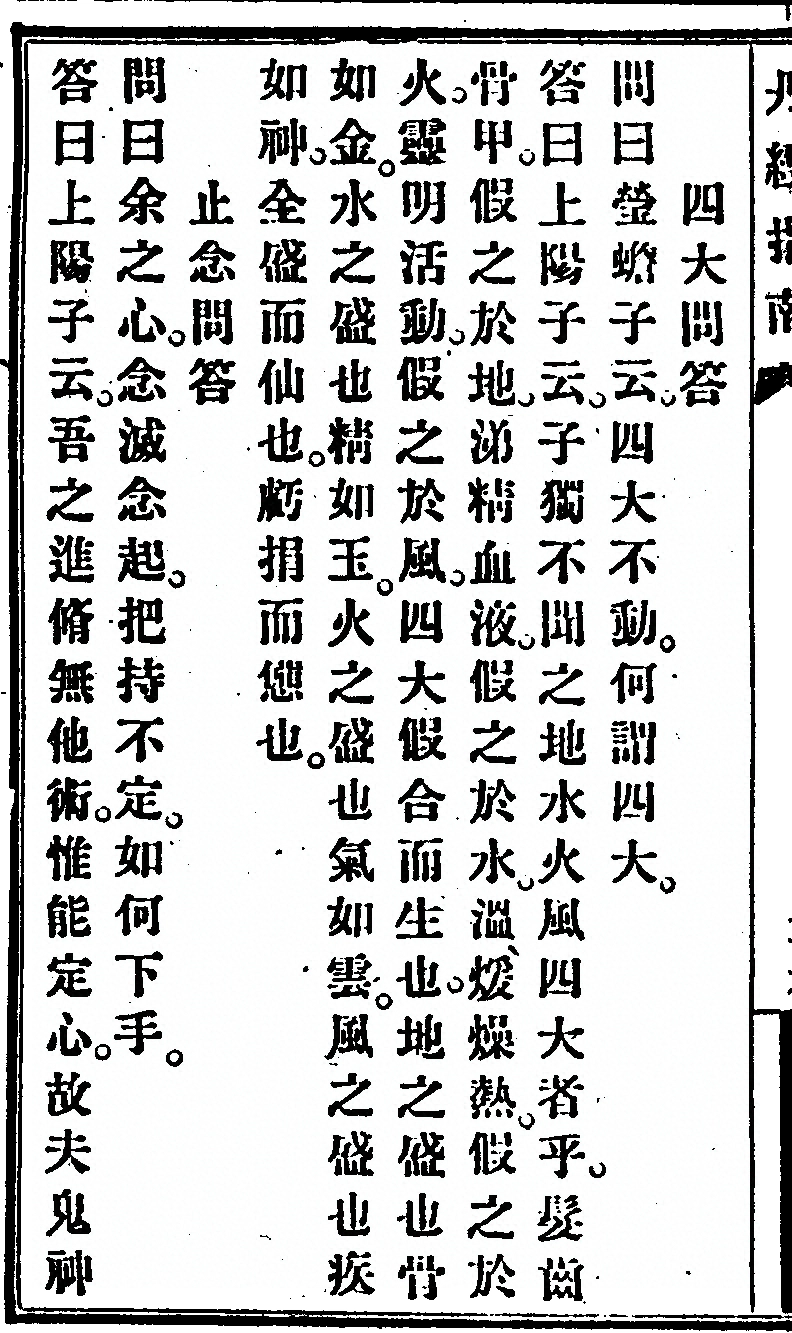 丹經指南
四大問答
問曰瑩蟾子云。四大不動。何謂四大。
答曰上陽子云。子獨不聞之地水火風四大者乎。髮齒
骨甲。假之於地。涕精血液。假之於水。溫煖燥熱。假之於
火。靈明活動。假之於風。四大假合而生也。地之盛也骨
如金。水之盛也精如玉。火之盛也氣如雲。風之盛也疾
如神。全盛而仙也。虧捐而憊也。
止念問答
問曰余之心。念滅念起。把持不定。如何下手。
答曰上陽子云。吾之進脩無他術。惟能定心。故夫鬼神